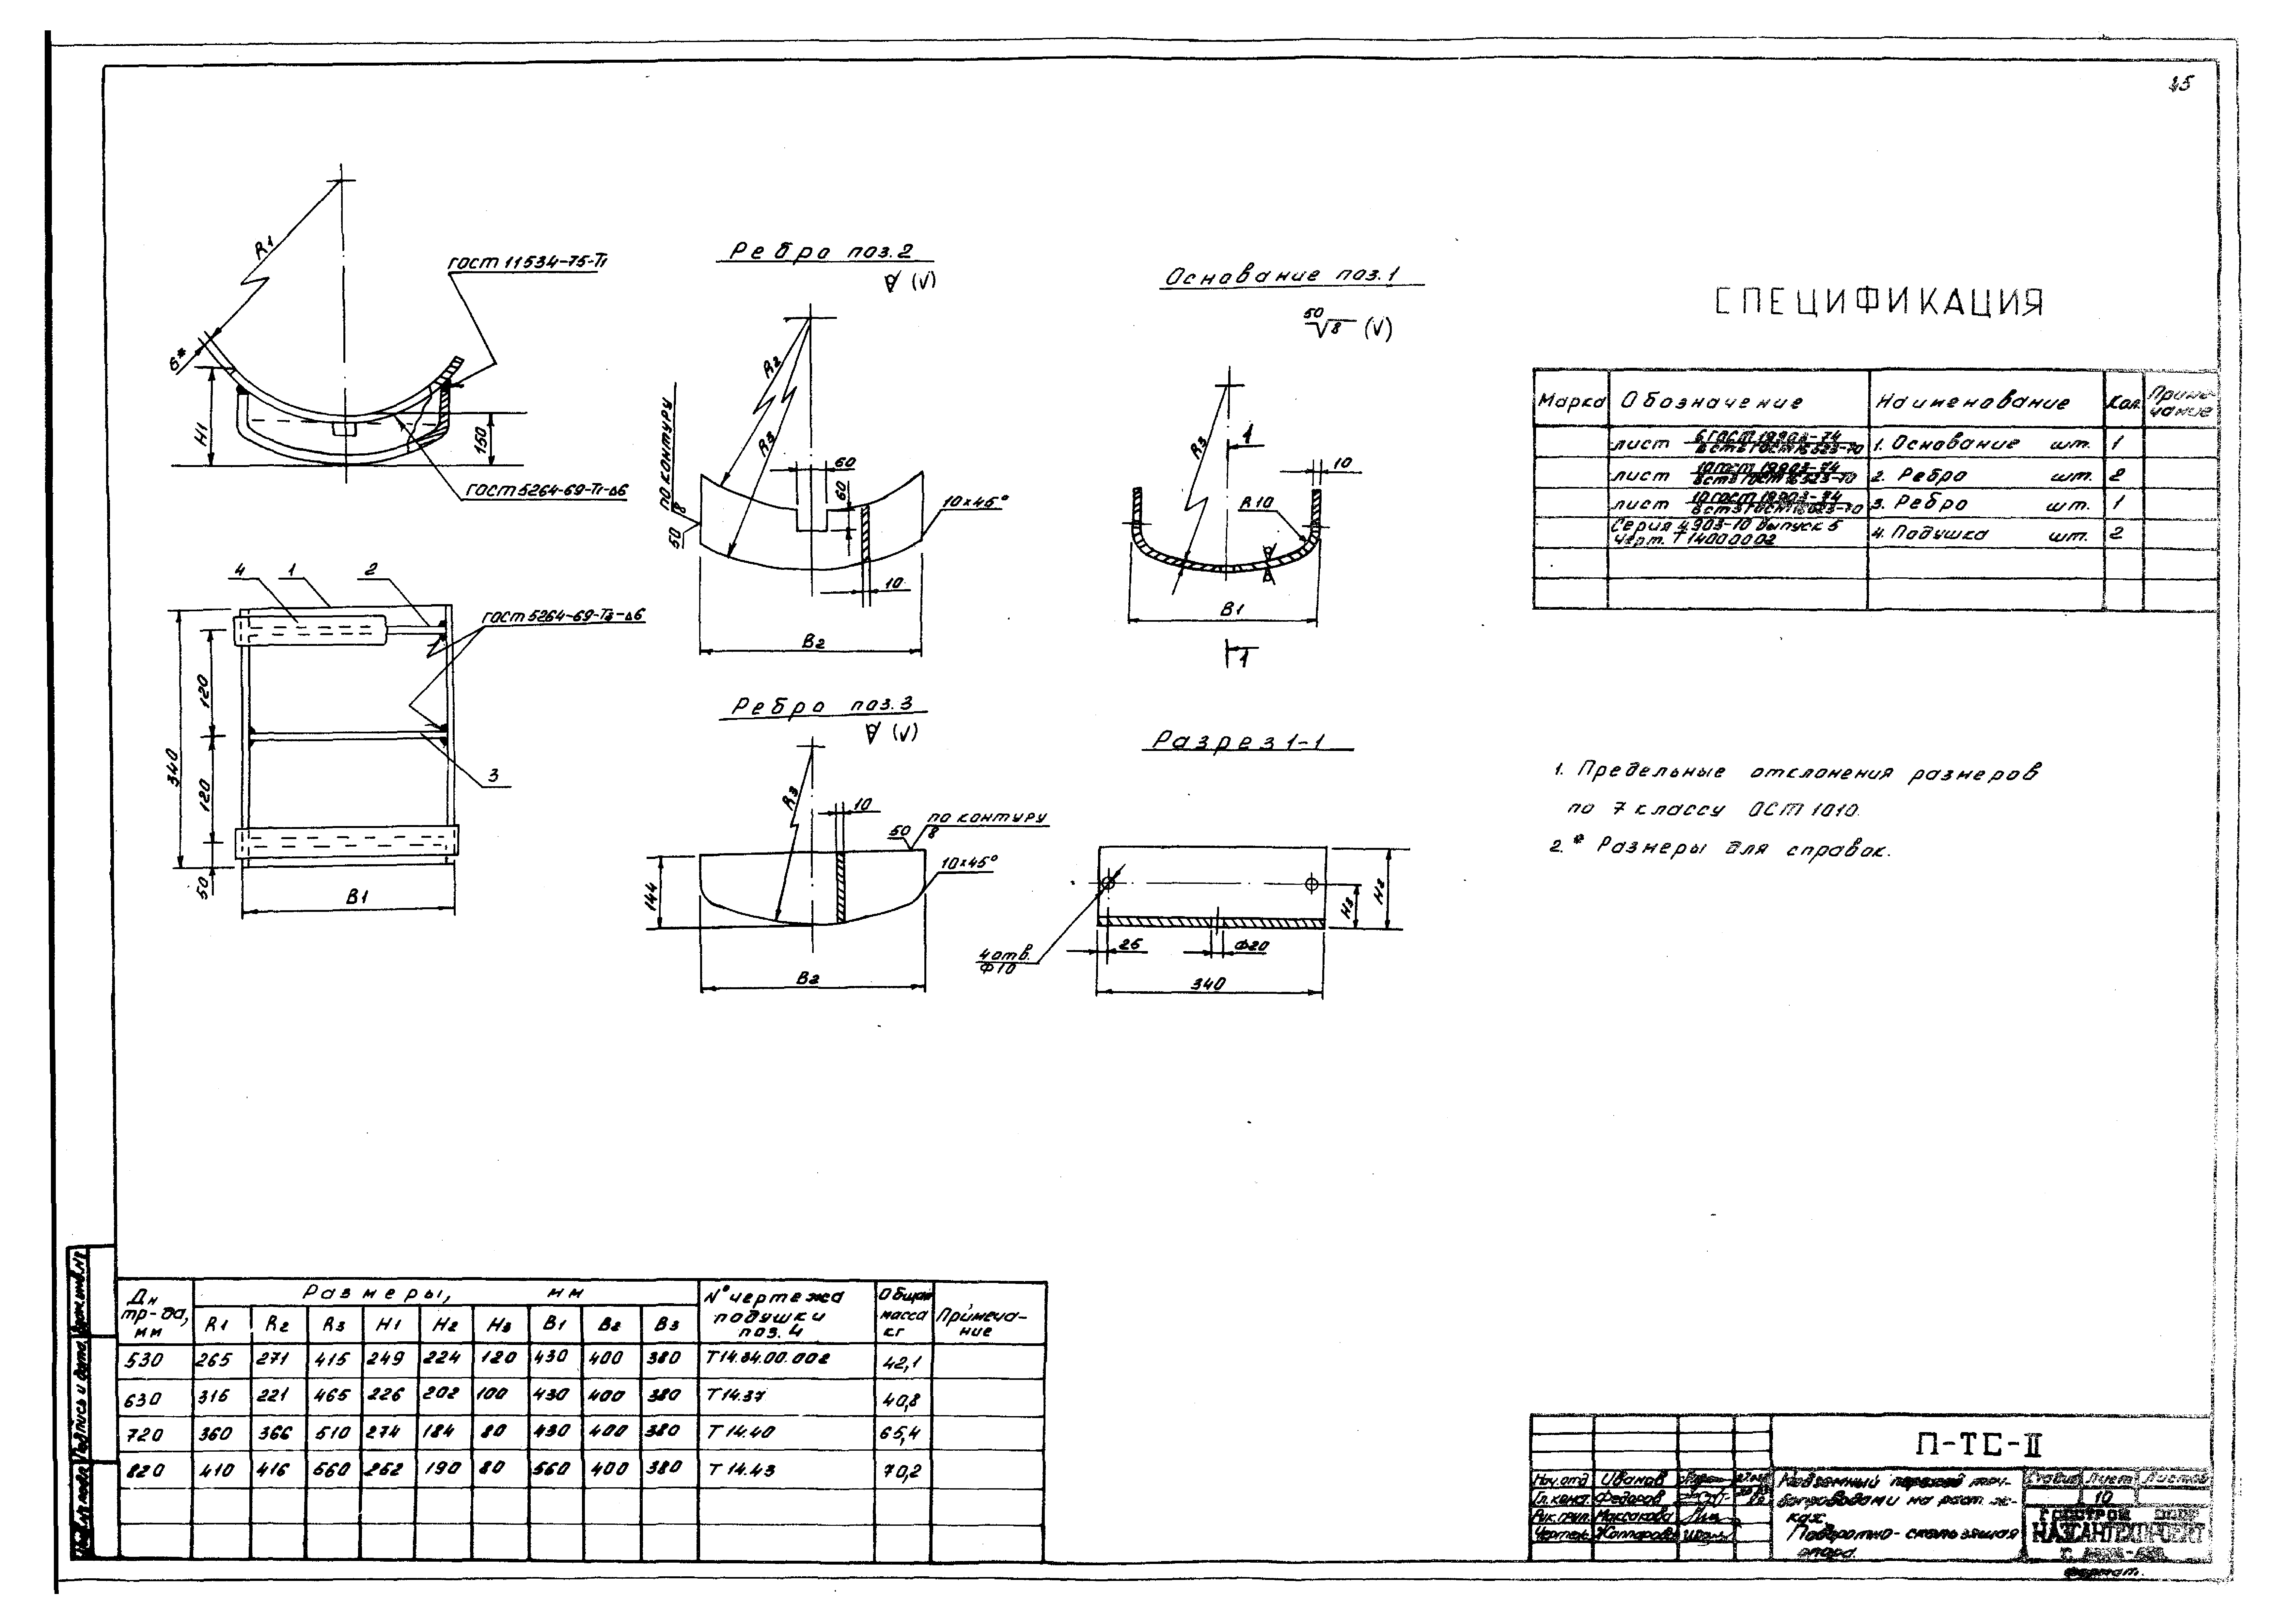 15
R1
ГОСТ 11534-75-Т1
6*
H1
150
ГОСТ 5264-69-Т1-Δ6
Ребро поз.2
(√)
R2
R3
по контуру
50
8
60
60
10×45°
10
B2
Основание поз.1
50
8 (√)
R3
1
10
R10
B1
1
СПЕЦИФИКАЦИЯ
Марка Обозначение Наименование Кол. Приме-
чание
лист 6 ГОСТ 19903-74 1. Основание шт. 1
лист 10 ГОСТ 19903-74 2. Ребро шт. 2
лист 10 ГОСТ 19903-74 3. Ребро шт. 1
Серия 4.903-10 Выпуск 5
Черт. Т 14000002 4. Подушка шт. 2
4 1 2
ГОСТ 5264-69-Т3-Δ6
120
340
120
3
50
B1
Ребро поз.3
(√)
R3
10
50
8
по контуру
10×45°
144
B2
Разрез 1-1
H3
H2
4 отв.
Ф10
25
Ф20
340
1. Предельные отклонения размеров
по 7 классу ОСТ 1010.
2.* Размеры для справок.
Дн
тр-да,
мм
Размеры, мм
R1 R2 R3 H1 H2 H3 B1 B2 B3
N° чертежа
подушки
поз. 4
Общая
масса
кг
Примеча-
ние
530 265 271 415 249 224 120 430 400 380 Т14.34.00.002 42,1
630 316 221 465 226 202 100 430 400 380 Т 14.37 40,8
720 360 366 510 274 184 80 430 400 380 Т 14.40 65,4
820 410 416 560 262 190 80 560 400 380 Т 14.43 70,2
Взам.инв.№
Подпись и дата
Инв.№ подл.
П-ТС-II
Нач.отд Иванов
Гл.конст. Федоров
Рук.груп. Максакова
Чертеж.
Надземный переход тру-
бопроводами на раст. ж-
ках.
Поворотно-скользящая
опора.
Стадия Лист Листов
10
ГОССТРОЙ СССР
КАЗСАНТЕХПРОЕКТ
Формат.